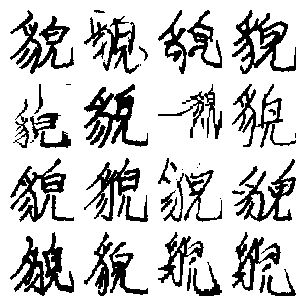 貌貌貌貌
貌貌貌貌
貌貌貌貌
貌貌貌貌